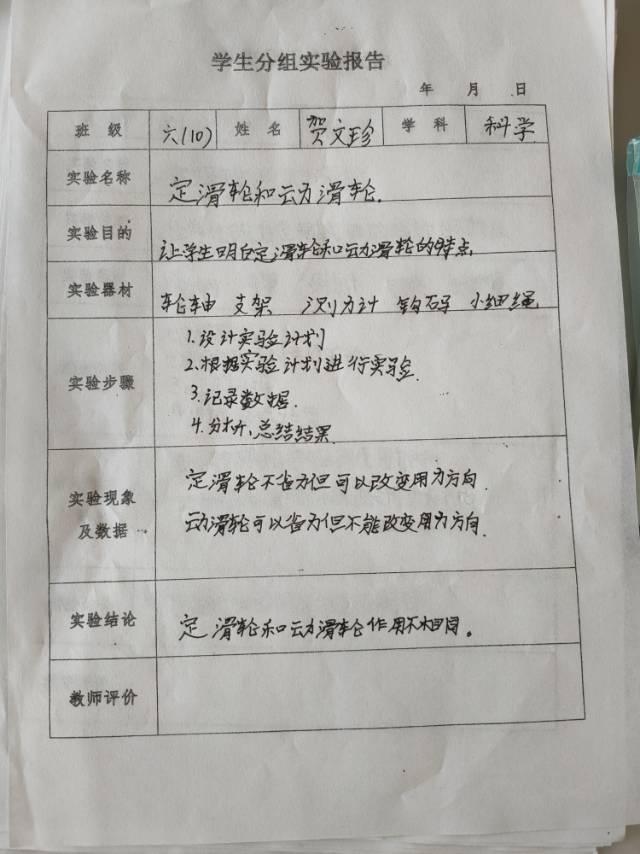 学生分组实验报告
年 月 日
班 级 六(10) 姓 名 贺文珍 学 科 科学
实验名称 定滑轮和动滑轮.
实验目的 让学生明白定滑轮和动滑轮的特点
实验器材 轮轴 支架 测力计 钩码 小细绳
1.设计实验计划
2.根据实验计划进行实验.
实验步骤
3.记录数据.
4.分析,总结结果
定滑轮不省力但可以改变用力方向.
实验现象
及数据
动滑轮可以省力但不能改变用力方向.
实验结论 定滑轮和动滑轮作用不相同。
教师评价